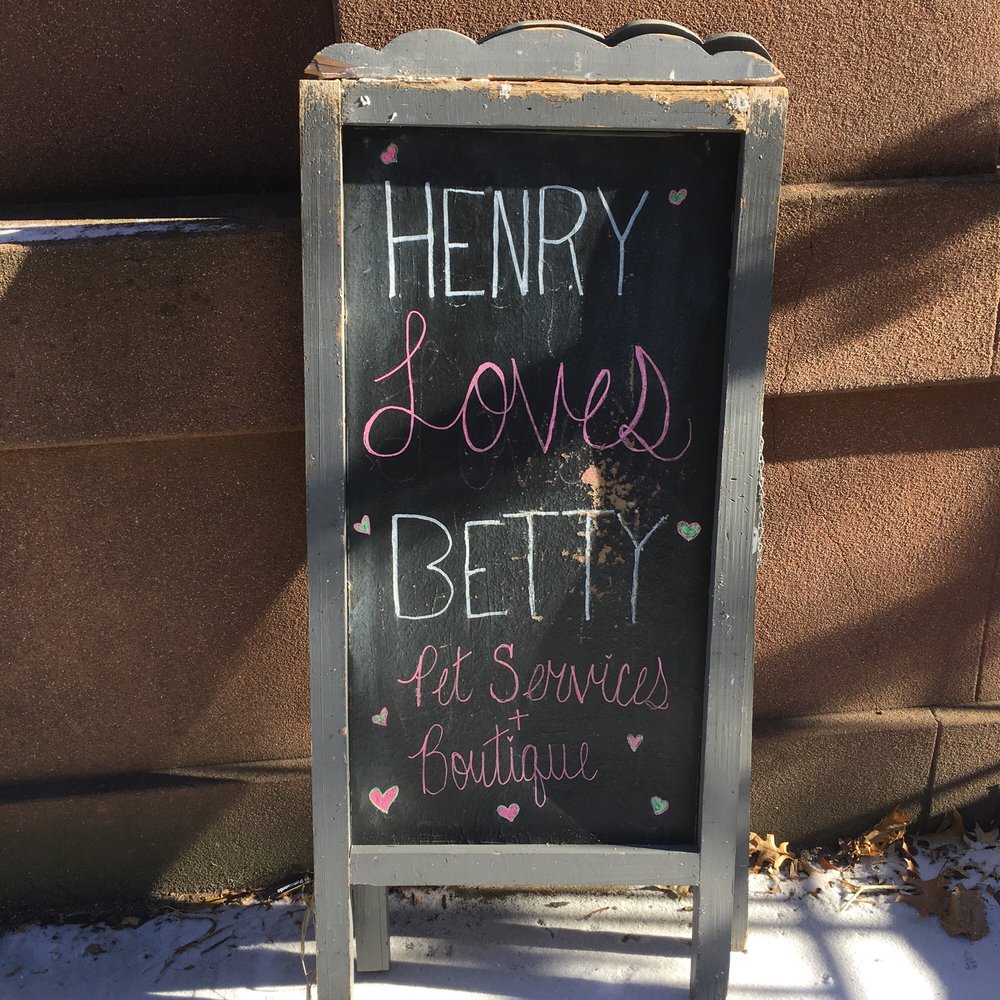 HENRY
Loves
BETTY
Pet Services
+
Boutique